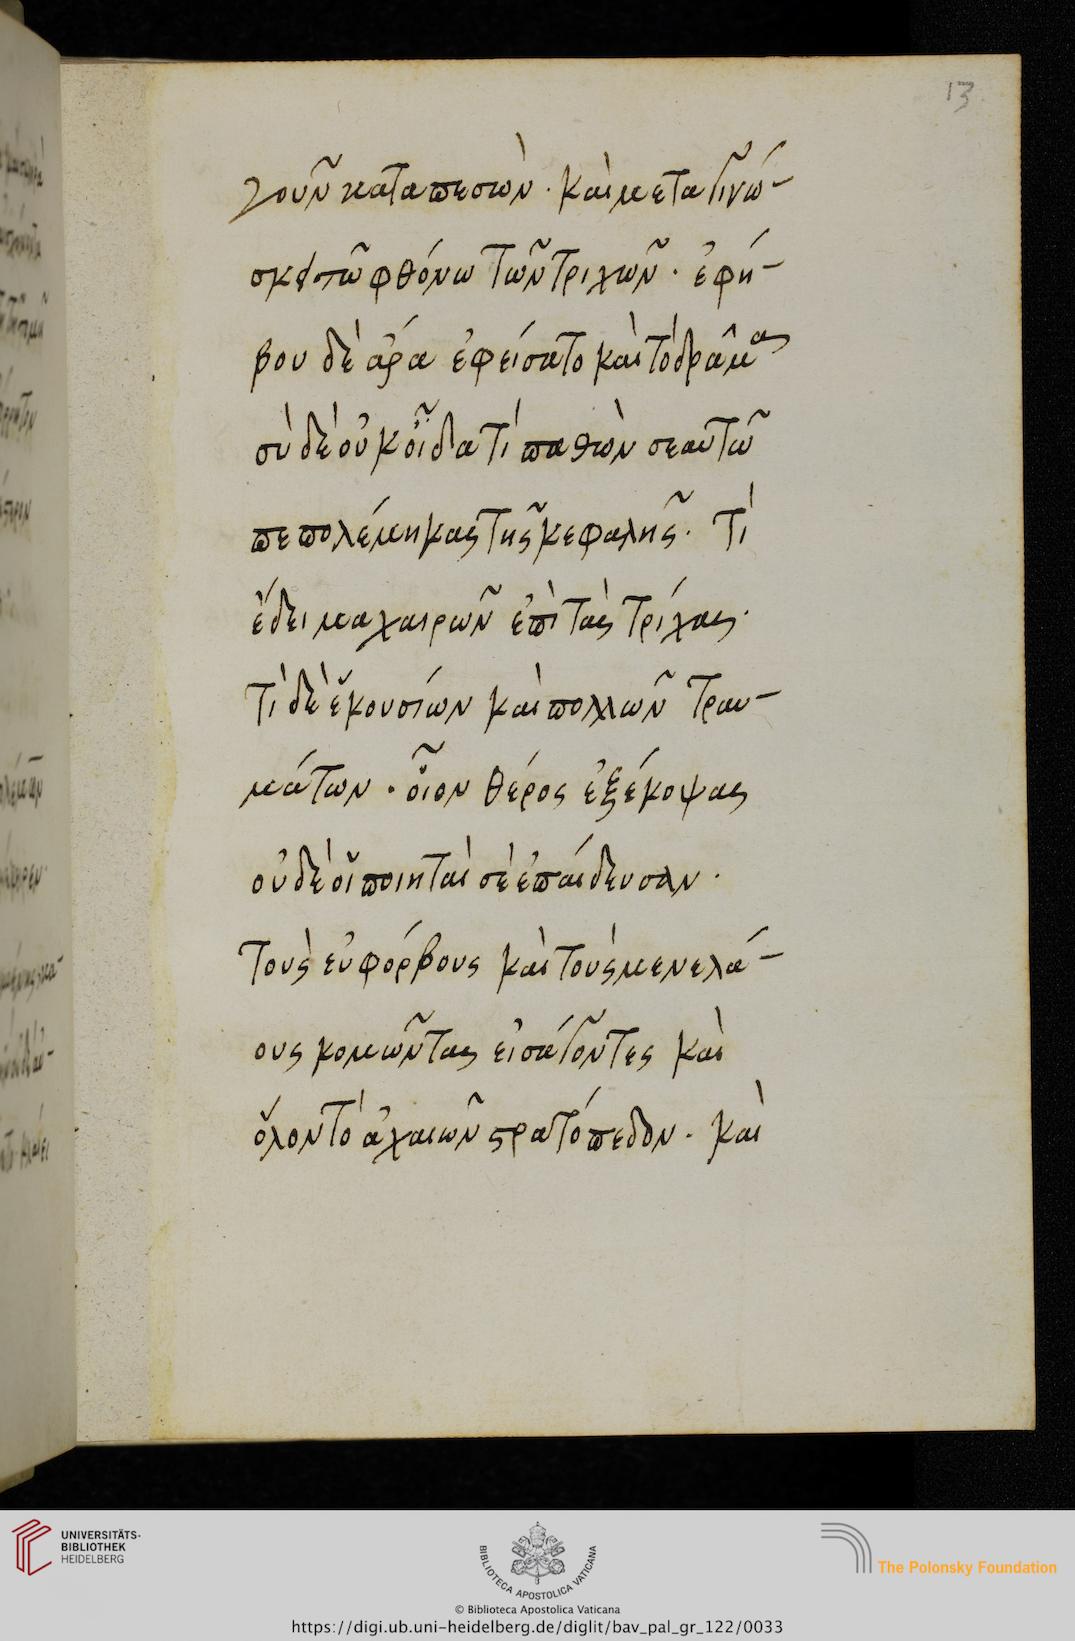 13
γουῦν καταπεσών · καὶ μεταγινώ-
σκει τῶ φθόνω τῶν τριχῶν · ἐφή-
βου δὲ ἄρα ἐφείσατο καὶ τὸ δρᾶμα
σὺ δὲ οὐκ οἶδα τί παθὼν σεαυτῶ
πεπολέμηκας τῆς κεφαλῆς · τί
ἔδει μαχαιρῶν ἐπὶ τὰς τρίχας ·
τί δὲ ἑκουσίων καὶ πολλῶν τραυ-
μάτων · οἷον θέρος ἐξέκοψας
οὐδὲ οἱ ποιηταὶ σὲ ἐπαίδευσαν ·
τοὺς εὐφόρβους καὶ τοὺς μενελά-
ους κομῶντας εἰσάγοντες καὶ
ὅλον τὸ ἀχαιῶν στρατόπεδον · καὶ
UNIVERSITÄTS-
BIBLIOTHEK
HEIDELBERG
BIBLIOTECA APOSTOLICA VATICANA
The Polonsky Foundation
© Biblioteca Apostolica Vaticana
https://digi.ub.uni-heidelberg.de/diglit/bav_pal_gr_122/0033